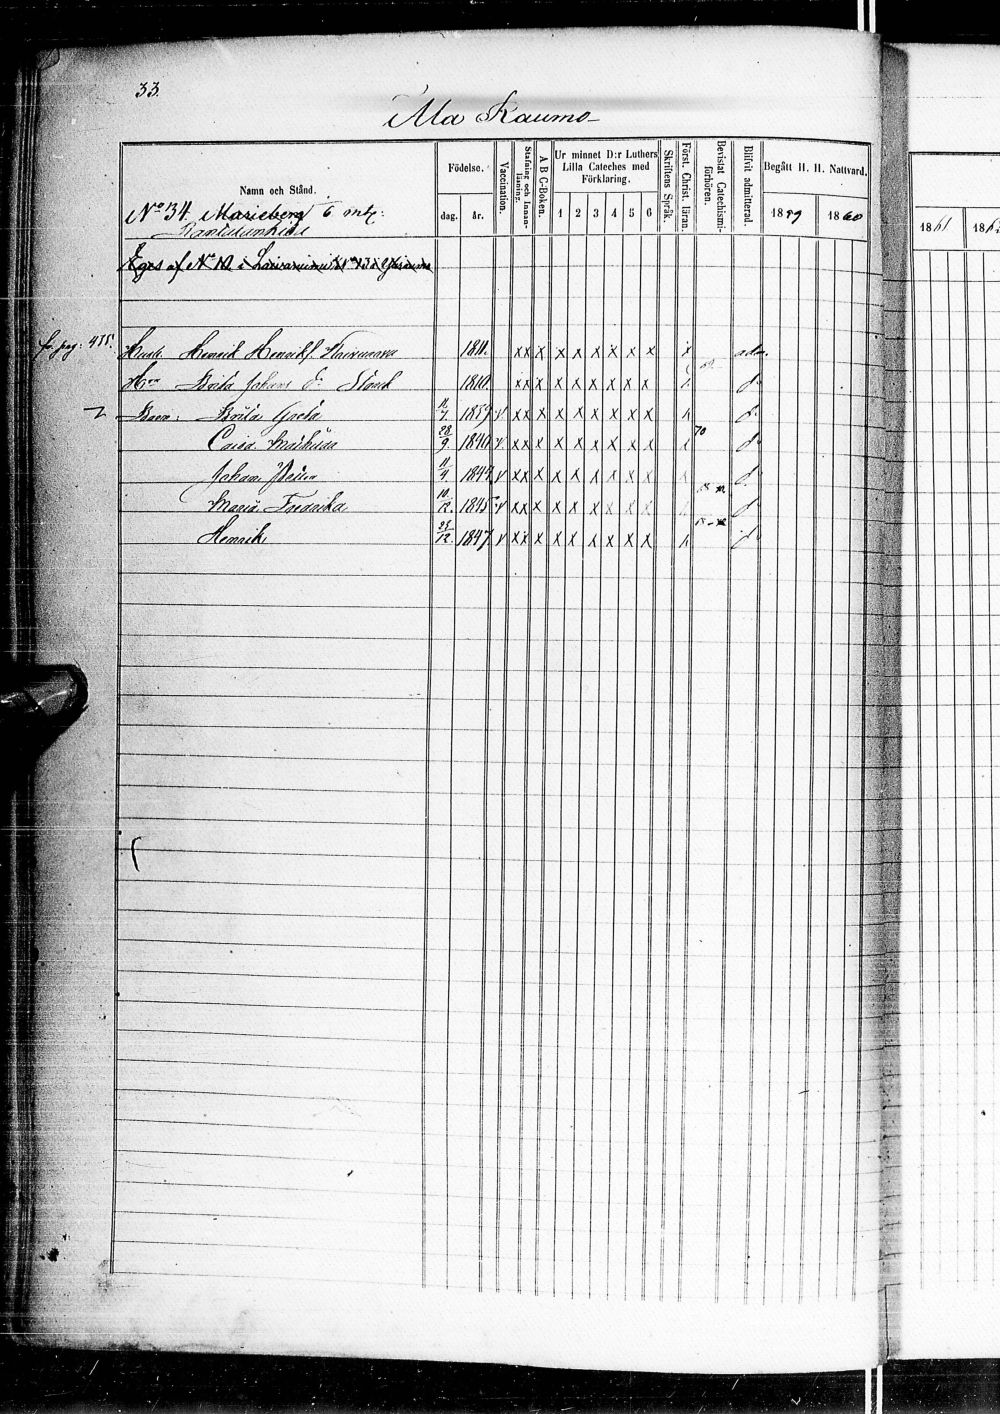 33.
Ala Raumo
Namn och Stånd.
Födelse.
dag. år.
Vaccination.
Stafning och Innanläsning.
A B C-Boken.
Ur minnet D:r Luthers Lilla Cateches med Förklaring.
1 2 3 4 5 6
Skriftens Språk.
Först. Christ. läran.
Bevistat Catechismiförhören.
Blifvit admitterad.
Begått H. H. Nattvard.
1859 1860
1861 186
No 34. Marieberg 6 mtl:
Eges af No 10 i
fr. pag: 455. Husb. Henrik Henrikss. 1811. x x x x x x x x x x adm.
Hu Brita Johans D. 1810. x x x x x x x x x
Barn: Brita Greta 11/7. 1839 v x x x x x x x x x
Caisa Mathilda 28/9 1840 v. x x x x x x x x x 70
Johan 11/4 v x x x x x x x x x
Maria Fredrika 10/12. 1845 v x x x x x x x x x
Henrik 28/12. 1847 v x x x x x x x x x